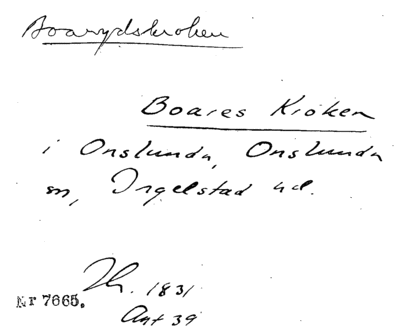 Boarydskroken
Boares Kroken
i Onslunda, Onslunda
sn, Ingelstad hd.
Th. 1831
Nr 7665.
Ant 39